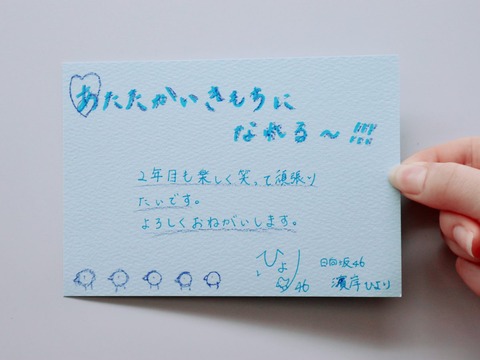 あたたかいきもちに
なれる～!!!
2年目も楽しく笑って頑張り
たいです。
よろしくおねがいします。
ひより
46
日向坂46
濱岸ひより